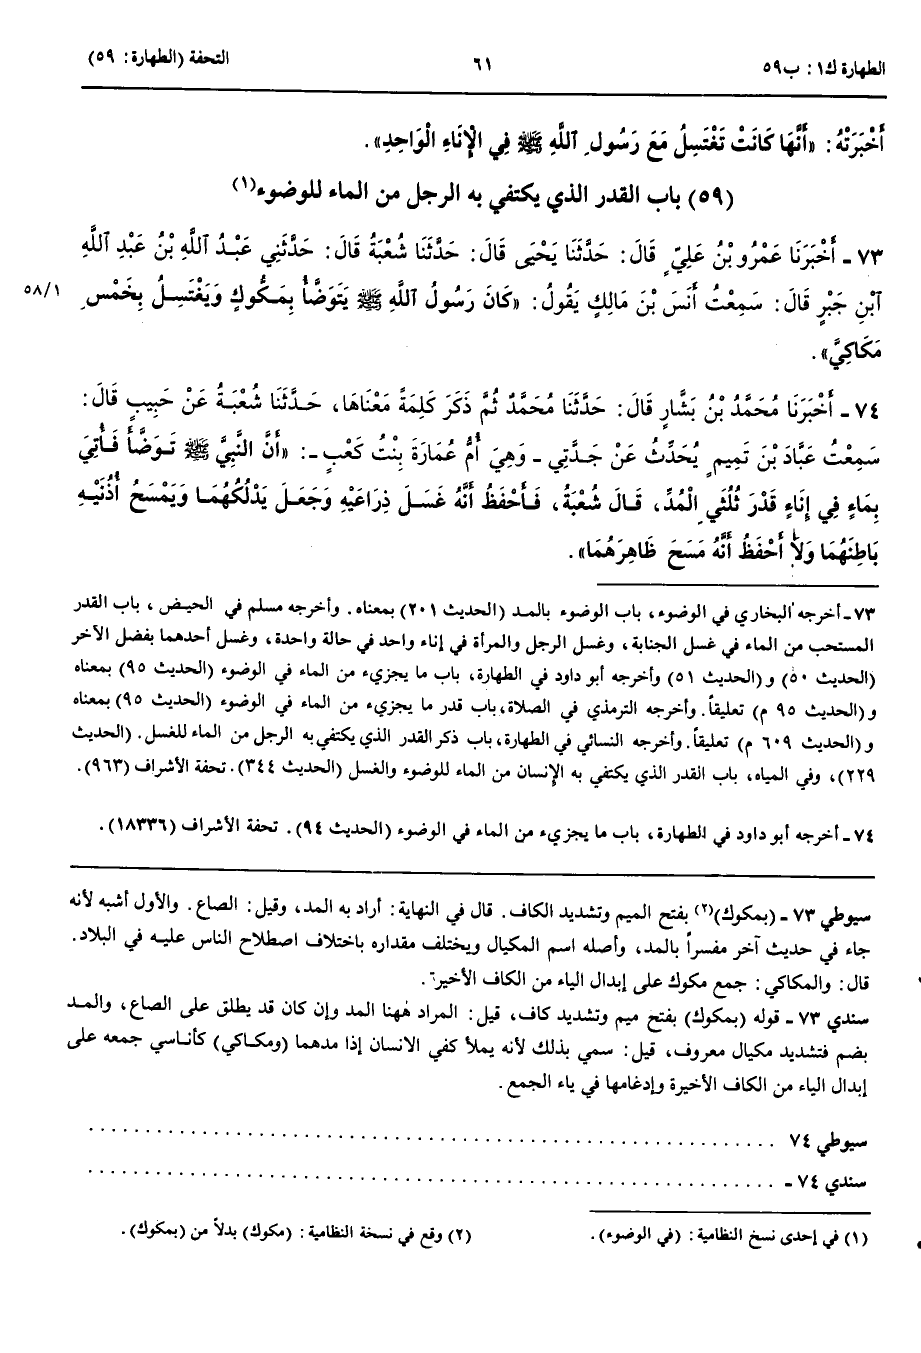 الطهارة ك١: ب٥٩ ٦١ التحفة (الطهارة: ٥٩)
أَخْبَرَتْهُ: «أَنَّهَا كَانَتْ تَغْتَسِلُ مَعَ رَسُولِ اللَّهِ ﷺ فِي الْإِنَاءِ الْوَاحِدِ».
(٥٩) باب القدر الذي يكتفي به الرجل من الماء للوضوء(١)
٧٣ ـ أَخْبَرَنَا عَمْرُو بْنُ عَلِيٍّ قَالَ: حَدَّثَنَا يَحْيَى قَالَ: حَدَّثَنَا شُعْبَةُ قَالَ: حَدَّثَنِي عَبْدُ اللَّهِ بْنُ عَبْدِ اللَّهِ
ابْنِ جَبْرٍ قَالَ: سَمِعْتُ أَنَسَ بْنَ مَالِكٍ يَقُولُ: «كَانَ رَسُولُ اللَّهِ ﷺ يَتَوَضَّأُ بِمَكُّوكٍ وَيَغْتَسِلُ بِخَمْسِ ٥٨/١
مَكَاكِيَّ».
٧٤ ـ أَخْبَرَنَا مُحَمَّدُ بْنُ بَشَّارٍ قَالَ: حَدَّثَنَا مُحَمَّدٌ ثُمَّ ذَكَرَ كَلِمَةً مَعْنَاهَا، حَدَّثَنَا شُعْبَةُ عَنْ حَبِيبٍ قَالَ:
سَمِعْتُ عَبَّادَ بْنَ تَمِيمٍ يُحَدِّثُ عَنْ جَدَّتِي ـ وَهِيَ أُمُّ عُمَارَةَ بِنْتُ كَعْبٍ ـ: «أَنَّ النَّبِيَّ ﷺ تَوَضَّأَ فَأُتِيَ
بِمَاءٍ فِي إِنَاءٍ قَدْرَ ثُلُثَيِ الْمُدِّ، قَالَ شُعْبَةُ، فَأَحْفَظُ أَنَّهُ غَسَلَ ذِرَاعَيْهِ وَجَعَلَ يَدْلُكُهُمَا وَيَمْسَحُ أُذُنَيْهِ
بَاطِنَهُمَا وَلَا أَحْفَظُ أَنَّهُ مَسَحَ ظَاهِرَهُمَا».
٧٣ـ أخرجه البخاري في الوضوء، باب الوضوء بالمد (الحديث ٢٠١) بمعناه. وأخرجه مسلم في الحيض، باب القدر
المستحب من الماء في غسل الجنابة، وغسل الرجل والمرأة في إناء واحد في حالة واحدة، وغسل أحدهما بفضل الآخر
(الحديث ٥٠) و (الحديث ٥١) وأخرجه أبو داود في الطهارة، باب ما يجزيء من الماء في الوضوء (الحديث ٩٥) بمعناه
و (الحديث ٩٥ م) تعليقاً. وأخرجه الترمذي في الصلاة، باب قدر ما يجزيء من الماء في الوضوء (الحديث ٩٥) بمعناه
و (الحديث ٦٠٩ م) تعليقاً. وأخرجه النسائي في الطهارة، باب ذكر القدر الذي يكتفي به الرجل من الماء للغسل. (الحديث
٢٢٩)، وفي المياه، باب القدر الذي يكتفي به الإنسان من الماء للوضوء والغسل (الحديث ٣٤٤). تحفة الأشراف (٩٦٣).
٧٤ـ أخرجه أبو داود في الطهارة، باب ما يجزيء من الماء في الوضوء (الحديث ٩٤). تحفة الأشراف (١٨٣٣٦).
سيوطي ٧٣ ـ (بمكوك)(٢) بفتح الميم وتشديد الكاف. قال في النهاية: أراد به المد، وقيل: الصاع. والأول أشبه لأنه
جاء في حديث آخر مفسراً بالمد، وأصله اسم المكيال ويختلف مقداره باختلاف اصطلاح الناس عليه في البلاد.
قال: والمكاكي: جمع مكوك على إبدال الياء من الكاف الأخيرة.
سندي ٧٣ ـ قوله (بمكوك) بفتح ميم وتشديد كاف، قيل: المراد ههنا المد وإن كان قد يطلق على الصاع، والمد
بضم فتشديد مكيال معروف، قيل: سمي بذلك لأنه يملأ كفي الانسان إذا مدهما (ومكاكي) كأناسي جمعه على
إبدال الياء من الكاف الأخيرة وإدغامها في ياء الجمع.
سيوطي ٧٤ ............................................................
سندي ٧٤ ـ ............................................................
(١) في إحدى نسخ النظامية: (في الوضوء). (٢) وقع في نسخة النظامية: (مكوك) بدلاً من (بمكوك).